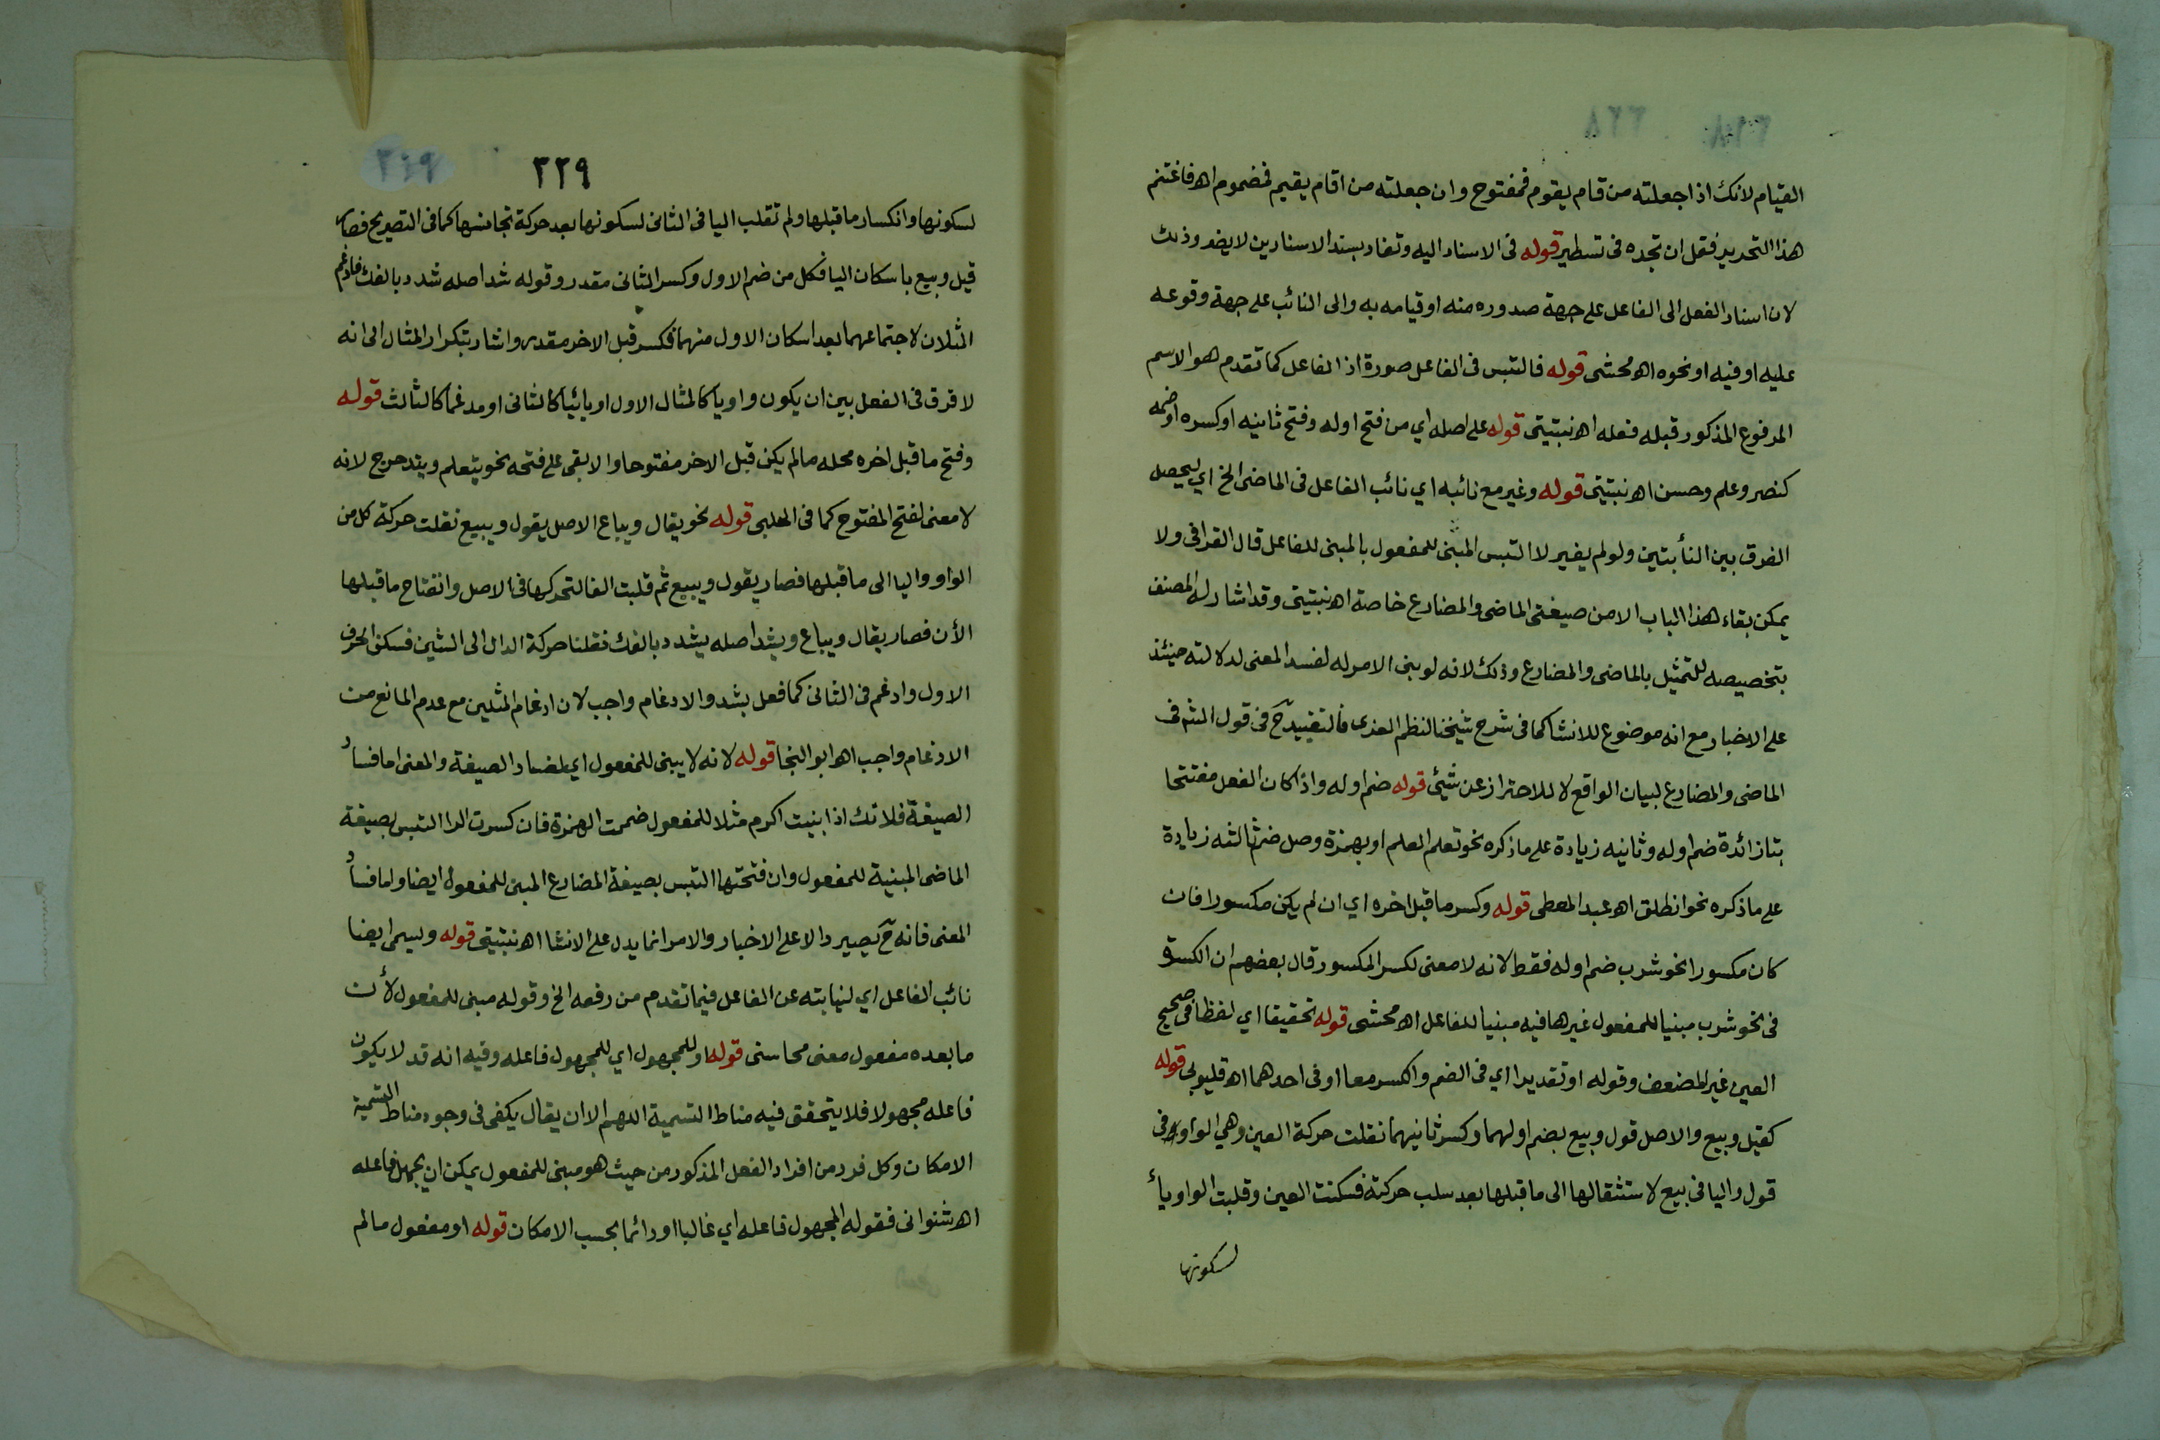 ٣٢٨
القيام لانك اذا جعلته من قام يقوم فمفتوح وان جعلته من اقام يقيم فمضموم اه فاغتنم
هذا التحرير فقل ان تجده في تسطير قوله في الاسناد اليه وتغاير الاسنادين لا يضر وذلك
لان اسناد الفعل الى الفاعل على جهة صدوره منه او قيامه به والى النائب على جهة وقوعه
عليه او فيه او نحوه اه محشى قوله فالتبس في الفاعل صورة اذ الفاعل كما تقدم هو الاسم
المرفوع المذكور قبله فعله اه نبتيتى قوله على اصله اي من فتح اوله وفتح ثانيه او كسره او ضمه
كنصر وعلم وحسن اه نبتيتى قوله وغير مع نائبه اي نائب الفاعل في الماضى الخ اي ليحصل
الفرق بين ولو لم يغير لا التبس المبنى للمفعول بالمبنى للفاعل قال القرافى ولا
يمكن بقاء هذا الباب الا من صيغتى الماضى والمضارع خاصة اه نبتيتى وقد اشار له المصنف
بتخصيصه للتمثيل بالماضى والمضارع وذلك لانه لو بنى الامر له لفسد المعنى لدلالته حينئذ
على الاخبار مع انه موضوع للانشا كما في شرح شيخنا لنظم العزى فالتقييد ح في قول الش في
الماضى والمضارع لبيان الواقع لا للاحتراز عن شيئ قوله ضم اوله واذا كان الفعل مفتتحا
بتا زائدة ضم اوله وثانيه زيادة على ما ذكره نحو تعلم العلم او بهمزة وصل ضم ثالثه زيادة
على ما ذكره نحو انطلق اه عبد المعطى قوله وكسر ما قبل اخره اي ان لم يكن مكسورا فان
كان مكسورا نحو شرب ضم اوله فقط لانه لا معنى لكسر المكسور قال بعضهم ان الكسرة
في نحو شرب مبنيا للمفعول غيرها فيه مبنيا للفاعل اه محشى قوله تحقيقا اي لفظا في صحيح
العين غير المضعف وقوله او تقديرا اي في الضم والكسر معا او في احدهما اه قليوبى قوله
كقيل وبيع والاصل قول وبيع بضم اولهما وكسر ثانيهما نقلت حركة العين وهي الواو في
قول واليا في بيع لاستثقالها الى ما قبلها بعد سلب حركته فسكنت العين وقلبت الواو يأ
لسكونها
٣٢٩
لسكونها وانكسار ما قبلها ولم تقلب اليا في الثانى لسكونها بعد حركة تجانسها كما في التصريح فصار
قيل وبيع باسكان اليا فكل من ضم الاول وكسر الثانى مقدر وقوله شد اصله شدد بالفك فادغم
المثلان لاجتماعهما بعد اسكان الاول منهما فكسر قبل الاخر مقدر واشار بتكرار المثال الى انه
لا فرق في الفعل بين ان يكون واويا كالمثال الاول او يائيا كالثانى او مدغما كالثالث قوله
وفتح ما قبل اخره محله ما لم يكن قبل الاخر مفتوحا والا بقى على فتحه نحو يتعلم ويتدحرج لانه
لا معنى لفتح المفتوح كما في الحلبى قوله نحو يقال ويباع الاصل يقول ويبيع نقلت حركة كل من
الواو واليا الى ما قبلها فصار يقول ويبيع ثم قلبت الفا لتحركها في الاصل وانفتاح ما قبلها
الأن فصار يقال ويباع ويشد اصله يشدد بالفك نقلنا حركة الدال الى الشين فسكن الحرف
الاول وادغم في الثانى كما فعل بشد والادغام واجب لان ادغام المثلين مع عدم المانع من
الادغام واجب اه ابو النجا قوله لانه لا يبنى للمفعول اي لفساد الصيغة والمعنى اما فساد
الصيغة فلانك اذا بنيت اكرم مثلا للمفعول ضممت الهمزة فان كسرت الرا التبس بصيغة
الماضى المبنية للمفعول وان فتحتها التبس بصيغة المضارع المبنى للمفعول ايضا واما فساد
المعنى فانه ح يصير دالا على الاخبار والامر انما يدل على الانشا اه نبتيتى قوله ويسمى ايضا
نائب الفاعل اي لنيابته عن الفاعل فيما تقدم من رفعه الخ وقوله مبنى للمفعول لأن
ما بعده مفعول معنى محاسنى قوله او للمجهول اي للمجهول فاعله وفيه انه قد لا يكون
فاعله مجهولا فلا يتحقق فيه مناط التسمية اللهم الا ان يقال يكفى في وجود مناط التسمية
الامكان وكل فرد من افراد الفعل المذكور من حيث هو مبنى للمفعول يمكن ان يجهل فاعله
اه شنوانى فقوله المجهول فاعله اي غالبا او دائما بحسب الامكان قوله او مفعول ما لم